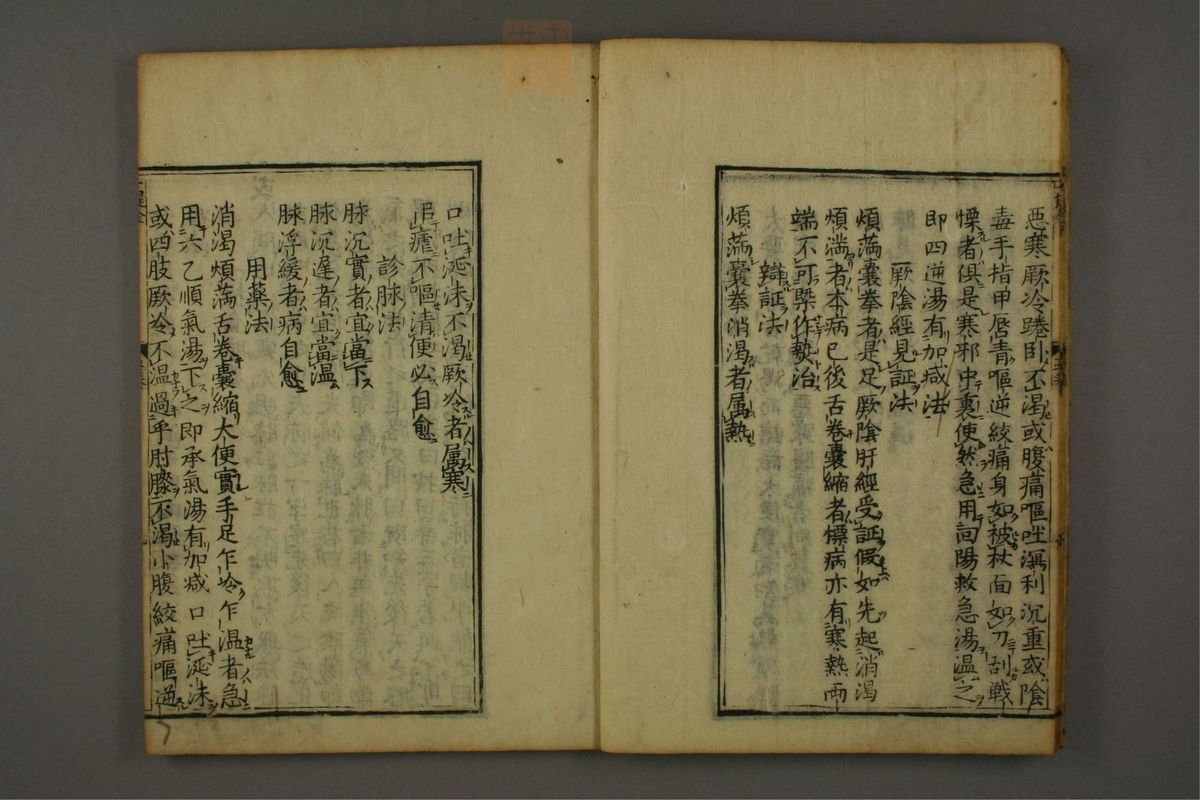 惡寒厥冷踡臥不渴或腹痛嘔吐瀉利沉重或陰
毒手指甲唇青嘔逆絞痛身如被杖面如刀刮戰
慄者俱是寒邪中裏使然急用回陽救急湯温之
即四逆湯有加减法
厥陰經見証法
煩滿囊拳者是足厥陰肝經受証假如先起消渴
煩滿者本病已後舌卷囊縮者標病亦有寒熱兩
端不可槩作𤍠治
辯証法
煩滿囊拳消渴者属熱
口吐涎沫不渴厥冷者属寒
似瘧不嘔清便必自愈
診脉法
脉沉實者宜當下
脉沉遲者宜當温
脉浮緩者病自愈
用藥法
消渴煩滿舌卷囊縮大便實手足乍冷乍温者急
用六乙順氣湯下之即承氣湯有加减口吐涎沫
或四肢厥冷不温過乎肘膝不渴小腹絞痛嘔逆